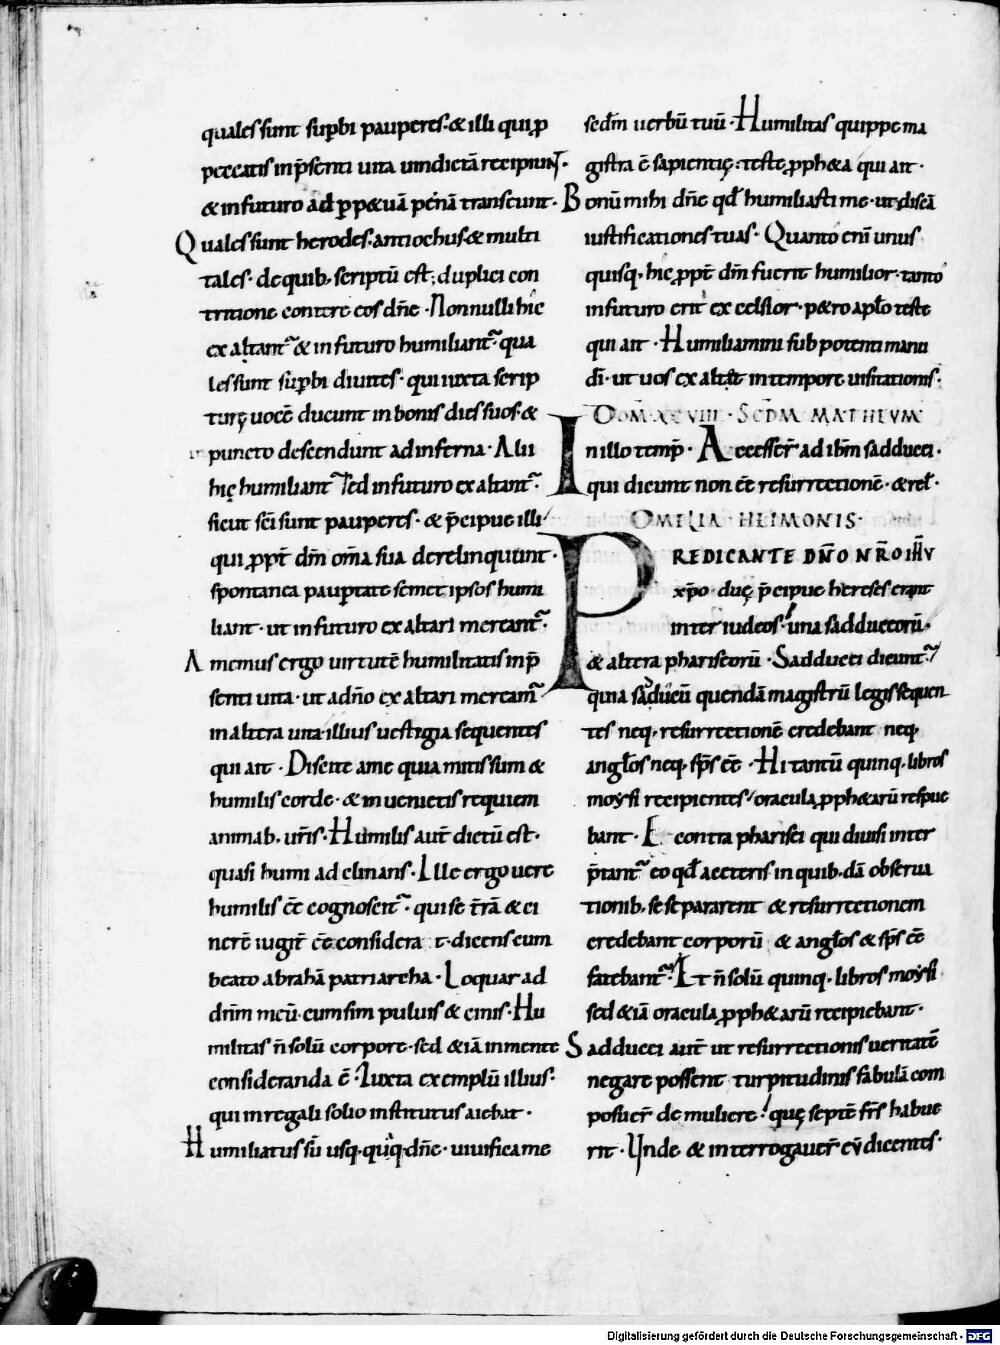 quales sunt supbi pauperes · & illi qui p
peccatis in p̄senti uita uindictā recipiunt ·
& in futuro ad ppetuā pęnā transeunt ·
Quales sunt herodes · antiochus & multi
tales · de quib, scriptū est, duplici con
tritione contere eos dn̄e · Nonnulli hic
exaltant̄ & in futuro humiliant̄ · qua
les sunt supbi diuites · qui iuxta scrip
turę uocē ducunt in bonis dies suos · &
in puncto descendunt ad inferna · Alii
hic humiliant̄ sed in futuro exaltant̄ ·
sicut sc̄i sunt pauperes · & p̄cipue illi
qui ppt̄ dm̄ om̄a sua derelinquunt ·
spontanea paupertate semet ipsos humi
liant · ut in futuro exaltari mereant̄ ·
Amemus ergo uirtutē humilitatis in p̄
senti uita · ut a dn̄o exaltari meream̄
in altera uita illius uestigia sequentes
qui ait · Discite a me quia mitis sum &
humilis corde · & inuenietis requiem
animab, ur̄is · Humilis aut̄ dictū est ·
quasi humi adclinans · Ille ergo uere
humilis ēe cognoscit̄ · qui se t̄rā & ci
nerē iugit̄ ēe considerat · dicens cum
beato abrahā patriarcha · Loquar ad
dn̄m meū · cum sim puluis & cinis · Hu
militas n̄ solū corpore · sed & iā in mente
consideranda ē · Iuxta exemplū illius ·
qui in regali solio institutus aiebat ·
Humiliatus sū usq, quq, dn̄e · uiuifica me
scdm̄ uerbū tuū · Humilitas quippe ma
gistra ē sapientię · teste pph&a qui ait ·
Bonū mihi dn̄e qd̄ humiliasti me · ut discā
iustificationes tuas · Quanto eni unus
quisq, hic ppt̄ dm̄ fuerit humilior · tanto
in futuro erit excelsior · p&ro aplo teste
qui ait · Humiliamini sub potenti manu
dī · ut uos exaltet in tempore uisitationis ·
DOM XXVIII · SCDM MATHEVM
In illo temp̄ · Accesser̄ ad ihm̄ sadducei ·
qui dicunt non ēe resurrectionē · & rel̄ ·
OMELIA HEIMONIS ·
PREDICANTE DN̄O NR̄O IHV
xp̄o · duę p̄cipue hereses erant
inter iudeos · una sadduceorū ·
& altera phariseorū · Sadducei dicunt̄
quia sadduceū quendā magistrū legis sequen
tes neq, resurrectionē credebant neq,
anglos neq, sp̄s ēe · Hi tantū quinq, libros
moysi recipientes oracula pph&arū respue
bant · E contra pharisei qui diuisi inter
p̄tant̄ eo qd̄ a ceteris in quib,dā obserua
tionib, se separarent & resurrectionem
credebant corporū & anglos & sp̄s ēe
fatebant̄ · Et n̄ solū quinq, libros moysi
sed & iā oracula pph&arū recipiebant ·
Sadducei aut̄ ut resurrectionis ueritatē
negare possent turpitudinis fabulā com
posuer̄ de muliere quę septē fr̄s habue
rit · Unde & interrogauer̄ eū dicentes ·
Digitalisierung gefördert durch die Deutsche Forschungsgemeinschaft - DFG